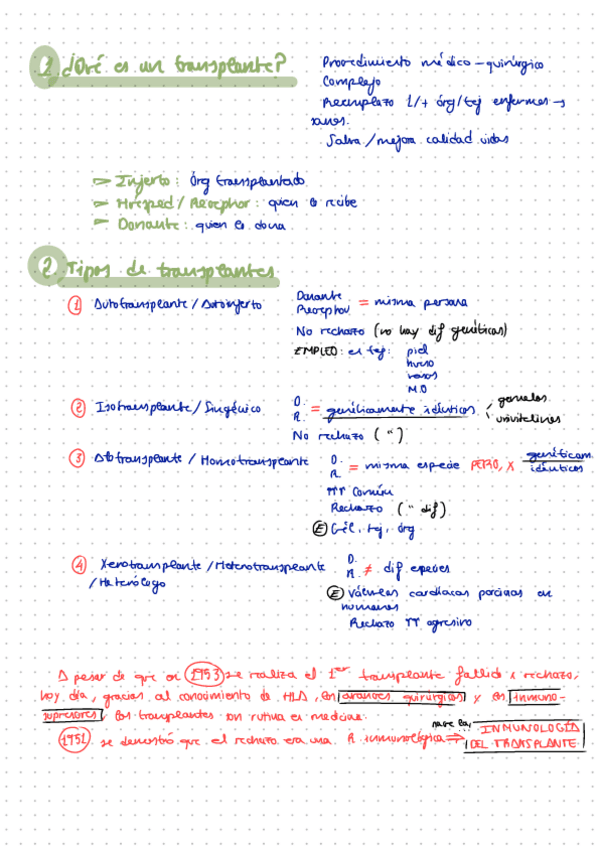 1 ¿Qué es un transplante?
Procedimiento médico-quirúrgico
Complejo
Reemplazo 1/+ órg/tej enfermos →
sanos.
Salva/mejora calidad vidas
➤ Injerto: órg transplantado
➤ Huésped/Receptor: quien lo recibe
➤ Donante: quien lo dona
2. Tipos de transplantes
1 Autotransplante/Autoinjerto
Donante
Receptor = misma persona
No rechazo (no hay dif genéticas)
EMPLEO: es tej: piel
hueso
vasos
M.O
2 Isotransplante/Singénico
D.
R. = genéticamente idénticos
gemelos
univitelinos
No rechazo (")
3 Alotransplante/Homotransplante
D.
R. = misma especie PERO, X genéticam
idénticos
ππ común
Rechazo (" dif)
E Cél, tej, órg
4 Xenotransplante/Heterotransplante
/Heterólogo
D.
R. ≠ dif especies
E válvulas cardíacas porcinas en
humanos
Rechazo ππ agresivo
A pesar de que en 1953 se realiza el 1er transplante fallido x rechazo,
hoy día, gracias al conocimiento de HLA, en avances quirúrgicos y en inmuno-
supresores, los transplantes son rutina en medicina.
1951 se demostró que el rechazo era una R. inmunológica ⇒ nace la, INMUNOLOGÍA
DEL TRANSPLANTE